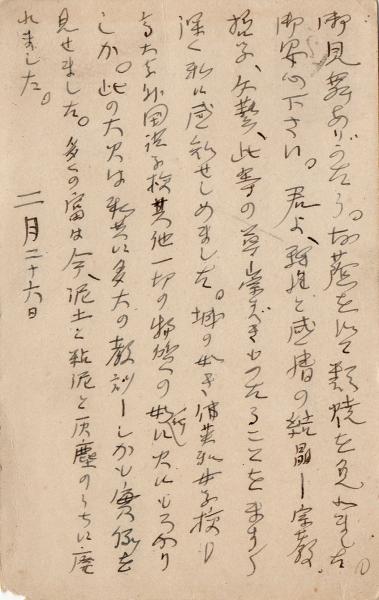 御見舞ありがたう。お蔭を以て類焼を免れました。
御安心下さい。君よ、理性と感情の結晶ー宗教、
哲学、文芸、此等の尊崇すべきものたることをますます
深く私に感知せしめました。城の如き
高大な外国語学校其他一切の物質の如何に火にもろかり
しか。此の大火は私共に多大の教訓ーしかも実例を
見せました。多くの富は今、泥土と粘泥と灰塵のうちに廃
れました。
二月二十六日